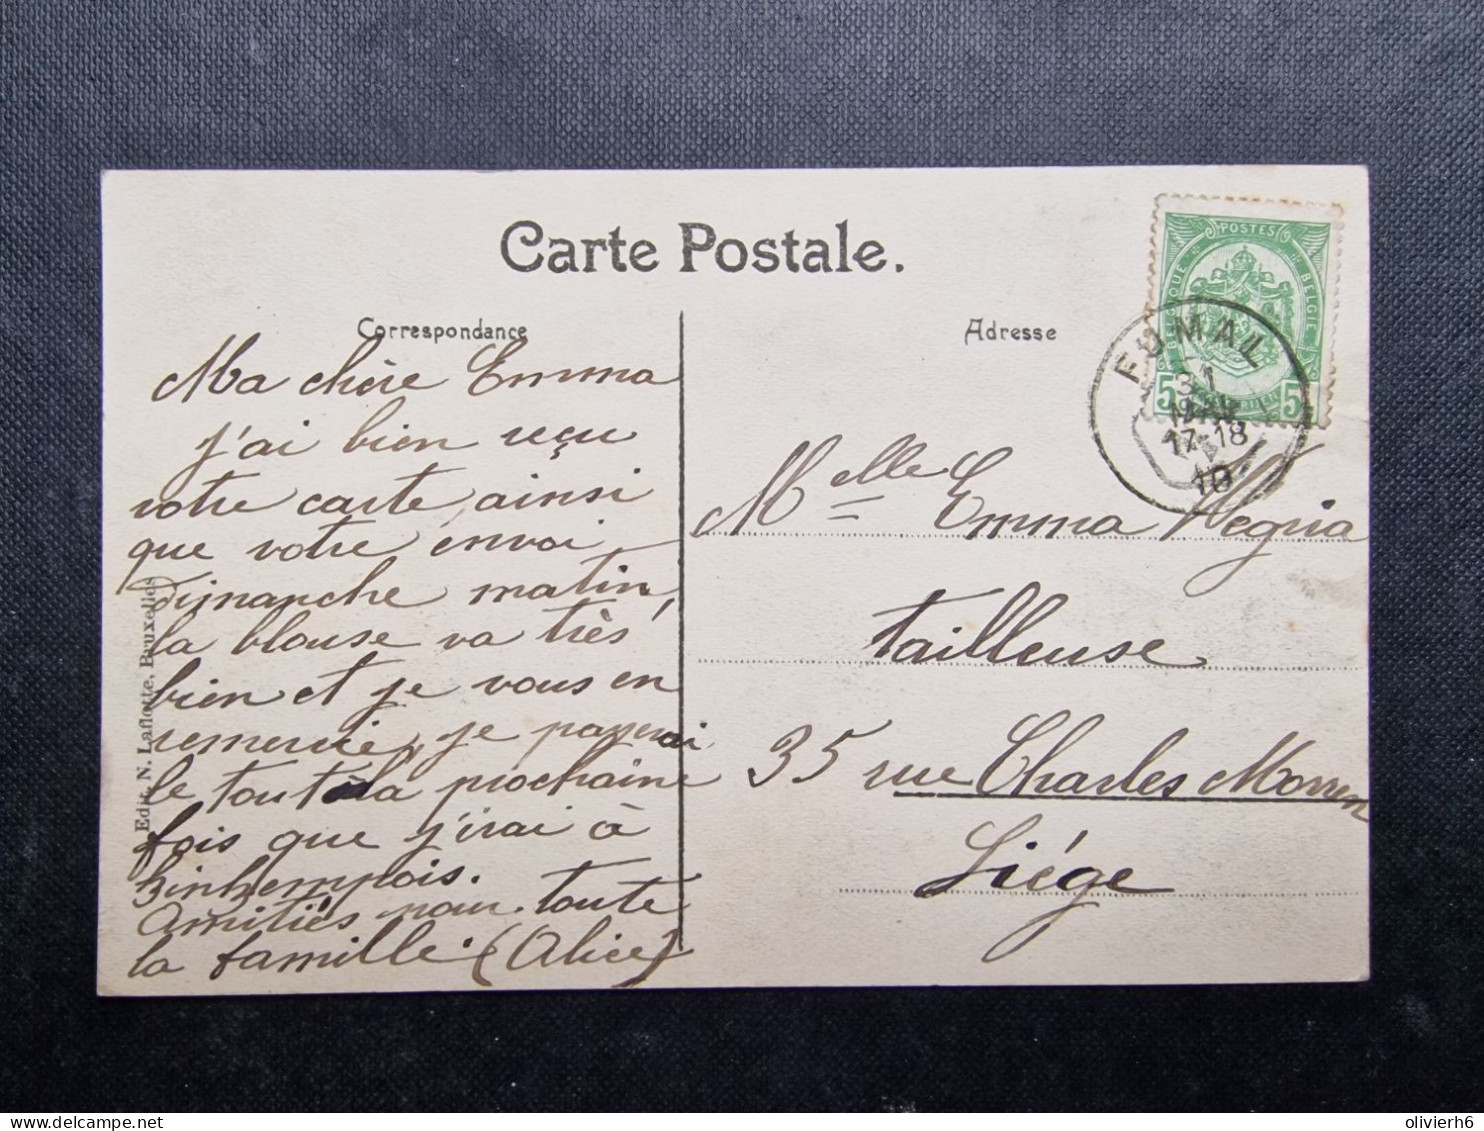 Carte Postale.
Correspondance
Ma chère Emma
j'ai bien reçu
votre carte, ainsi
que votre envoi
Dimanche matin,
la blouse va très
bien et je vous en
remercie, je payerai
le tout à la prochaine
fois que j'irai à
Kinkempois.
Amitiés pour toute
la famille. (Alice)
Edit. N. Laflotte, Bruxelles
Adresse
POSTES
BELGIQUE
BELGIE
5 5
FUMAL
31
17-18
10
Melle Emma Negria
tailleuse
35 rue Charles Morren
Liége
olivierh6